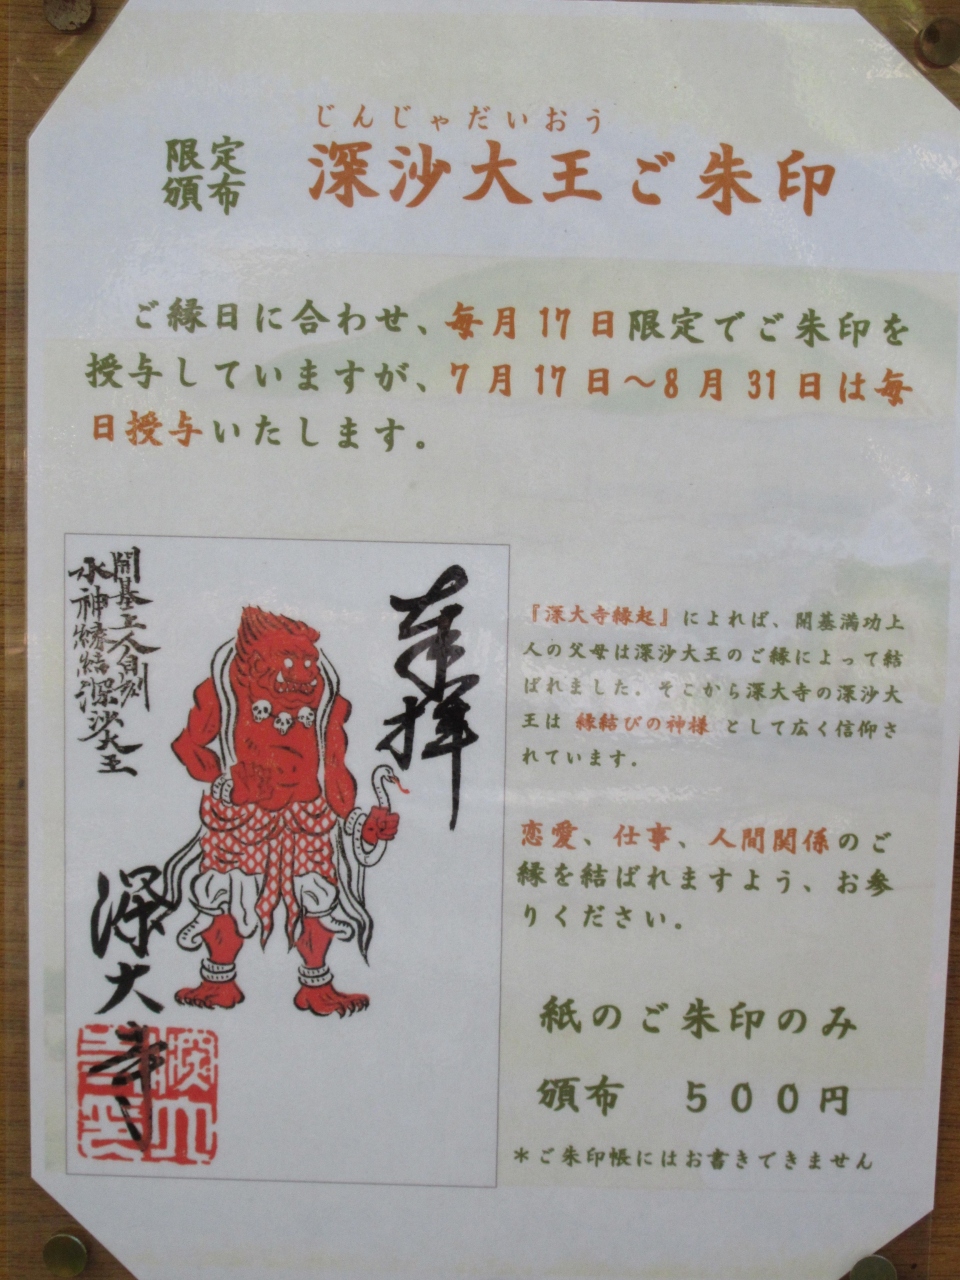 じんじゃだいおう
限定
頒布
深沙大王ご朱印
ご縁日に合わせ、毎月17日限定でご朱印を
授与していますが、7月17日～8月31日は毎
日授与いたします。
奉拝
開基上人自刻
水神縁結深沙大王
深大寺
『深大寺縁起』によれば、開基満功上
人の父母は深沙大王のご縁によって結
ばれました。そこから深大寺の深沙大
王は 縁結びの神様 として広く信仰さ
れています。
恋愛、仕事、人間関係のご
縁を結ばれますよう、お参
りください。
紙のご朱印のみ
頒布　５００円
＊ご朱印帳にはお書きできません